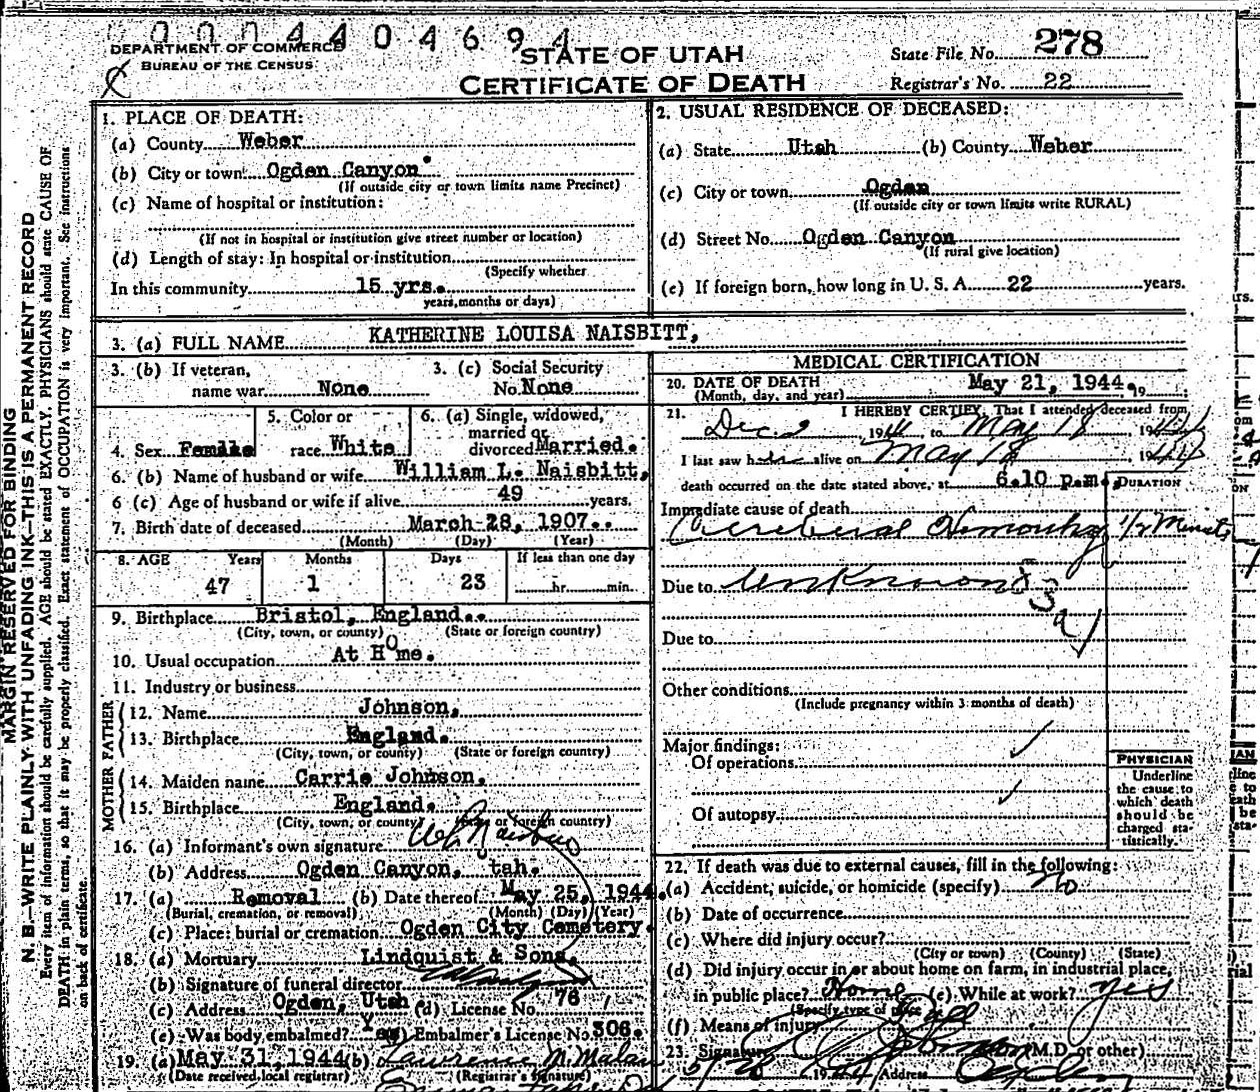 0 0 0 4 4 0 4 6 9 4
DEPARTMENT OF COMMERCE
BUREAU OF THE CENSUS
STATE OF UTAH
CERTIFICATE OF DEATH
State File No. 278
Registrar's No. 22
MARGIN RESERVED FOR BINDING
N. B.—WRITE PLAINLY WITH UNFADING INK—THIS IS A PERMANENT RECORD
Every item of information should be carefully supplied. AGE should be stated EXACTLY. PHYSICIANS should state CAUSE OF
DEATH in plain terms, so that it may be properly classified. Exact statement of OCCUPATION is very important. See instructions
on back of certificate.
1. PLACE OF DEATH:
(a) County Weber
(b) City or town Ogden Canyon
(If outside city or town limits name Precinct)
(c) Name of hospital or institution:
(If not in hospital or institution give street number or location)
(d) Length of stay: In hospital or institution
(Specify whether
In this community 15 yrs.
years, months or days)
2. USUAL RESIDENCE OF DECEASED:
(a) State Utah (b) County Weber
(c) City or town Ogden
(If outside city or town limits write RURAL)
(d) Street No. Ogden Canyon
(If rural give location)
(e) If foreign born, how long in U. S. A. 22 years.
3. (a) FULL NAME KATHERINE LOUISA NAISBITT,
3. (b) If veteran,
name war None
3. (c) Social Security
No. None
4. Sex Female
5. Color or
race White
6. (a) Single, widowed,
married or
divorced Married.
6. (b) Name of husband or wife William L. Naisbitt,
6 (c) Age of husband or wife if alive 49 years.
7. Birth date of deceased March 28, 1907..
(Month) (Day) (Year)
8. AGE Years Months Days If less than one day
47 1 23 hr. min.
9. Birthplace Bristol, England..
(City, town, or county) (State or foreign country)
10. Usual occupation At Home.
11. Industry or business
FATHER
12. Name Johnson,
13. Birthplace England.
(City, town, or county) (State or foreign country)
MOTHER
14. Maiden name Carrie Johnson.
15. Birthplace England.
(City, town, or county) (State or foreign country)
16. (a) Informant's own signature
(b) Address Ogden Canyon, tah.
17. (a) Removal (b) Date thereof May 25, 1944.
(Burial, cremation, or removal) (Month) (Day) (Year)
(c) Place: burial or cremation Ogden City Cemetery.
18. (a) Mortuary Lindquist & Sons,
(b) Signature of funeral director
(c) Address Ogden, Utah (d) License No. 76
(e) Was body embalmed? Yes Embalmer's License No 306.
19. (a) May 31, 1944 (b) Lawrence M. Malan
(Date received local registrar) (Registrar's signature)
MEDICAL CERTIFICATION
20. DATE OF DEATH May 21, 1944. 19
(Month, day, and year)
21. I HEREBY CERTIFY, That I attended deceased from
Dec. 2 1944 to May 18 1944
I last saw her alive on May 18 1944
death occurred on the date stated above, at 6.10 p.m.
DURATION
Immediate cause of death
Cerebral Hemorrhag 1/2 Minute
Due to Unknown
83a
Due to
Other conditions
(Include pregnancy within 3 months of death)
Major findings:
Of operations
Of autopsy
PHYSICIAN
Underline
the cause to
which death
should be
charged sta-
tistically.
22. If death was due to external causes, fill in the following:
(a) Accident, suicide, or homicide (specify) No
(b) Date of occurrence
(c) Where did injury occur?
(City or town) (County) (State)
(d) Did injury occur in or about home on farm, in industrial place,
in public place? Home (e) While at work? yes
(Specify type of place)
(f) Means of injury
23. Signature (M.D. or other)
Address Ogden